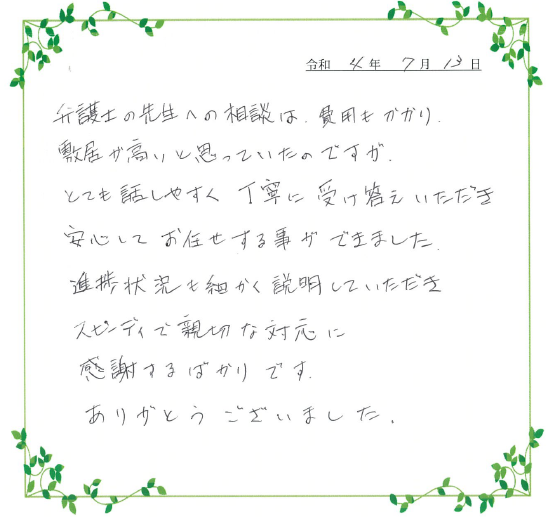 令和 4年 7月 13日
弁護士の先生への相談は、費用もかかり、
敷居が高いと思っていたのですが、
とても話しやすく 丁寧に 受け答えいただき
安心して お任せする事が できました。
進捗状況も細かく説明していただき
スピーディで親切な対応に
感謝するばかりです。
ありがとうございました。